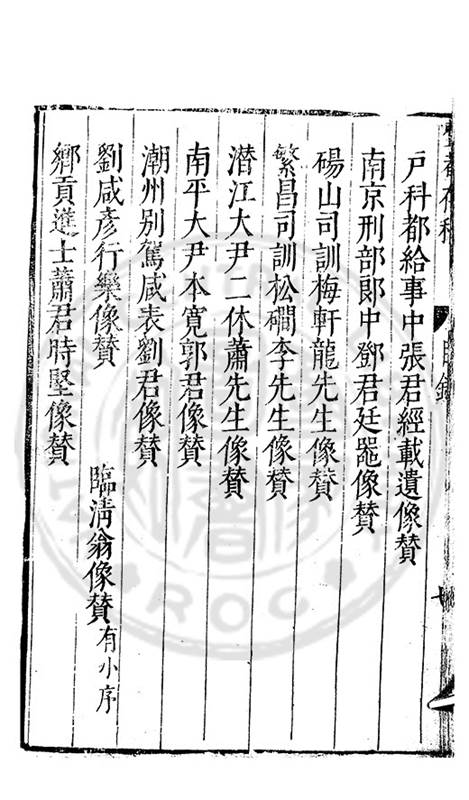 戶科都給事中張君經載遺像賛
南京刑部郎中鄧君廷噐像賛
碭山司訓梅軒龍先生像賛
繁昌司訓松磵李先生像賛
潜江大尹二休蕭先生像賛
南平大尹本寛郭君像賛
潮州别駕咸表劉君像賛
劉咸彦行樂像賛
臨清翁像賛有小序
鄉貢進士蕭君時堅像賛